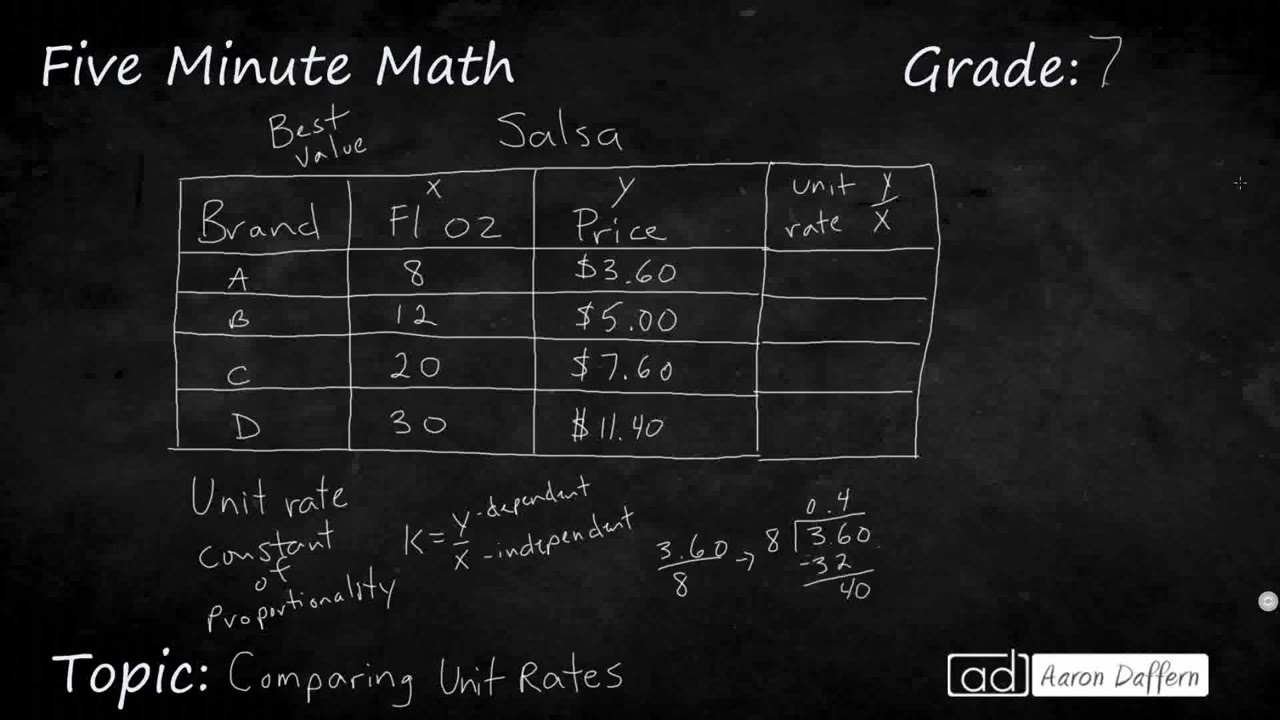 Five Minute Math
Grade: 7
Best
value
Salsa
Brand
x
Fl oz
y
Price
unit y
rate x
A 8 $3.60
B 12 $5.00
C 20 $7.60
D 30 $11.40
Unit rate
constant
of
proportionality
K = y - dependent
x - independent
3.60 →
8
0.4
8 3.60
-32
40
Topic: Comparing Unit Rates
ad Aaron Daffern